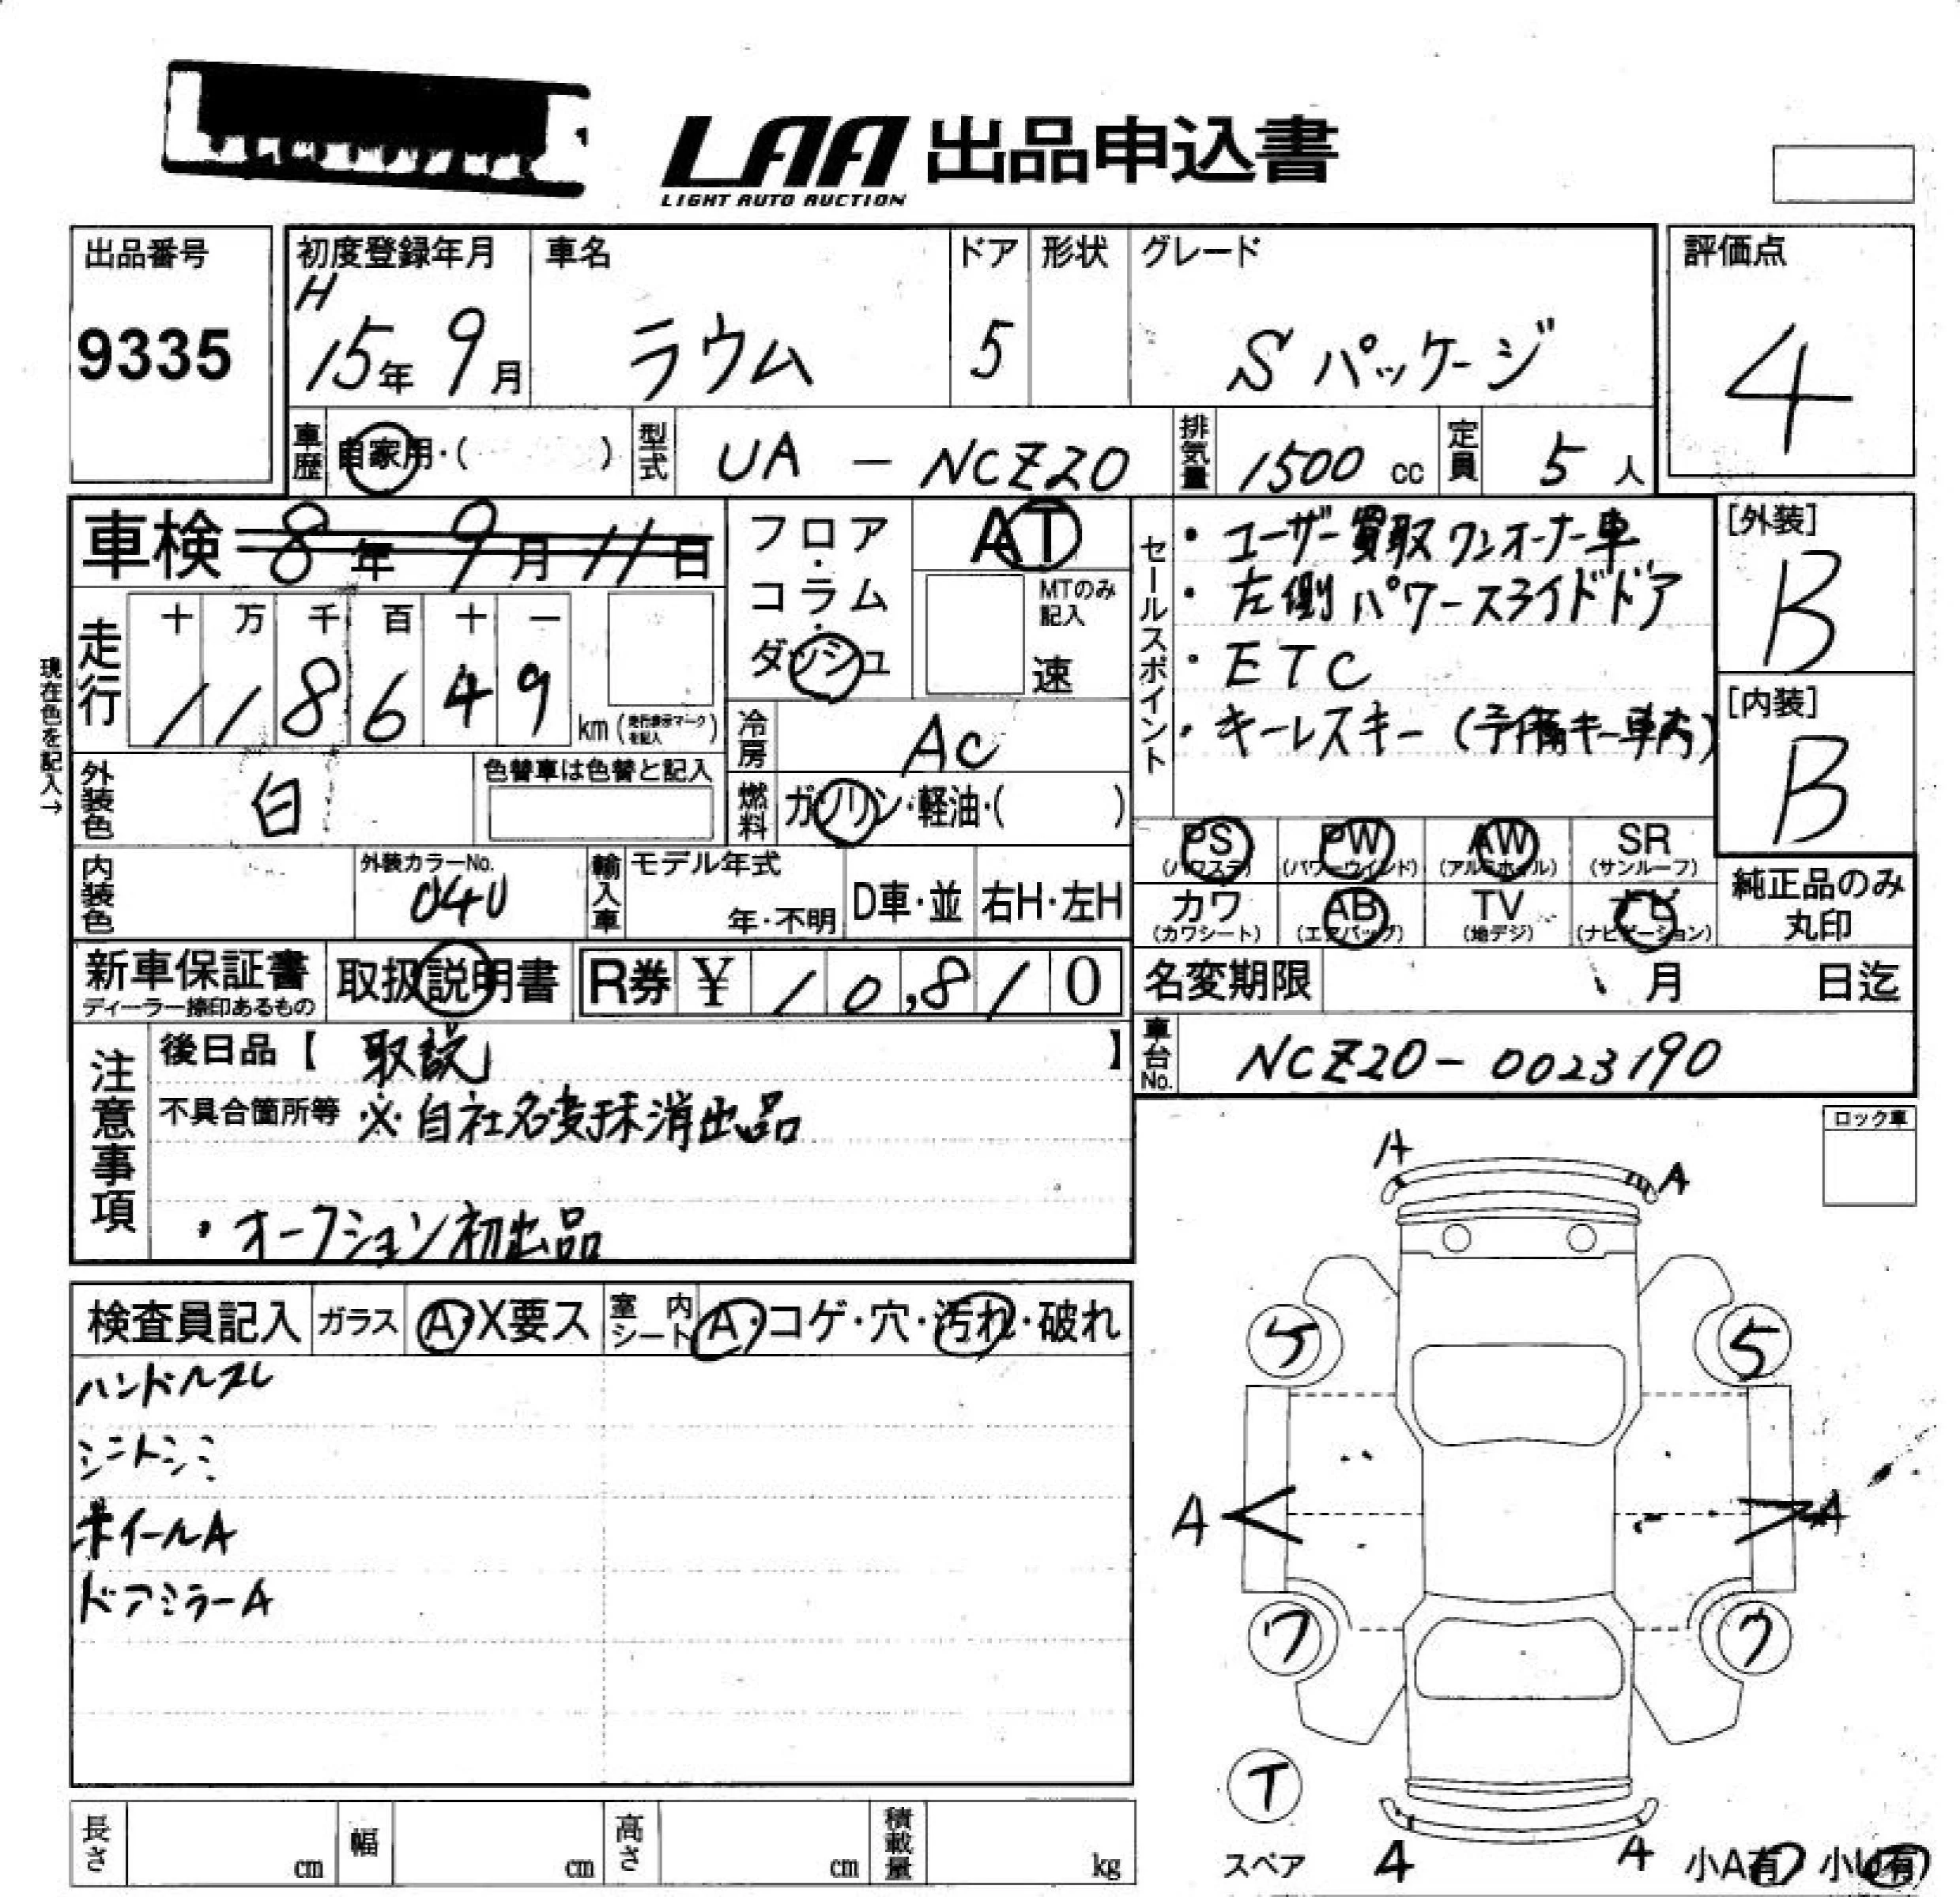 LAA 出品申込書
LIGHT AUTO AUCTION
出品番号
9335
初度登録年月
H
15年 9月
車名
ラウム
ドア
5
形状
グレード
Sパッケージ
評価点
4
車歴 自家用・( )
型式 UA - NCZ20
排気量 1500 cc
定員 5 人
車検 8年 9月 11日
フロア・コラム・ダッシュ
AT
MTのみ記入
速
セールスポイント
・ユーザー買取ワンオーナー車
・左側パワースライドドア
・ETC
・キーレスキー(予備キー車内)
[外装]
B
[内装]
B
現在色を記入→
走行
十 万 千 百 十 一
1 1 8 6 4 9
km(走行表示マークを記入)
冷房 AC
外装色 白
色替車は色替と記入
燃料 ガソリン・軽油・( )
PS (パワステ)
PW (パワーウインド)
AW (アルミホイル)
SR (サンルーフ)
カワ (カワシート)
AB (エアバッグ)
TV (地デジ)
ナビ (ナビゲーション)
純正品のみ丸印
内装色
外装カラーNo.
040
輸入車
モデル年式
年・不明
D車・並
右H・左H
新車保証書
ディーラー捺印あるもの
取扱説明書
R券 ¥ 10,810
名変期限 月 日迄
注意事項
後日品【 取説 】
不具合箇所等 ※自社名変抹消出品
・オークション初出品
車台No. NCZ20-0023190
ロック車
A A
検査員記入
ガラス A・X要ス
室内シート A・コゲ・穴・汚れ・破れ
ハンドルスレ
シートシミ
ホイールA
ドアミラーA
5 5
A A
ワ ワ
T
スペア
A A
小A有 小U有
長さ cm
幅 cm
高さ cm
積載量 kg